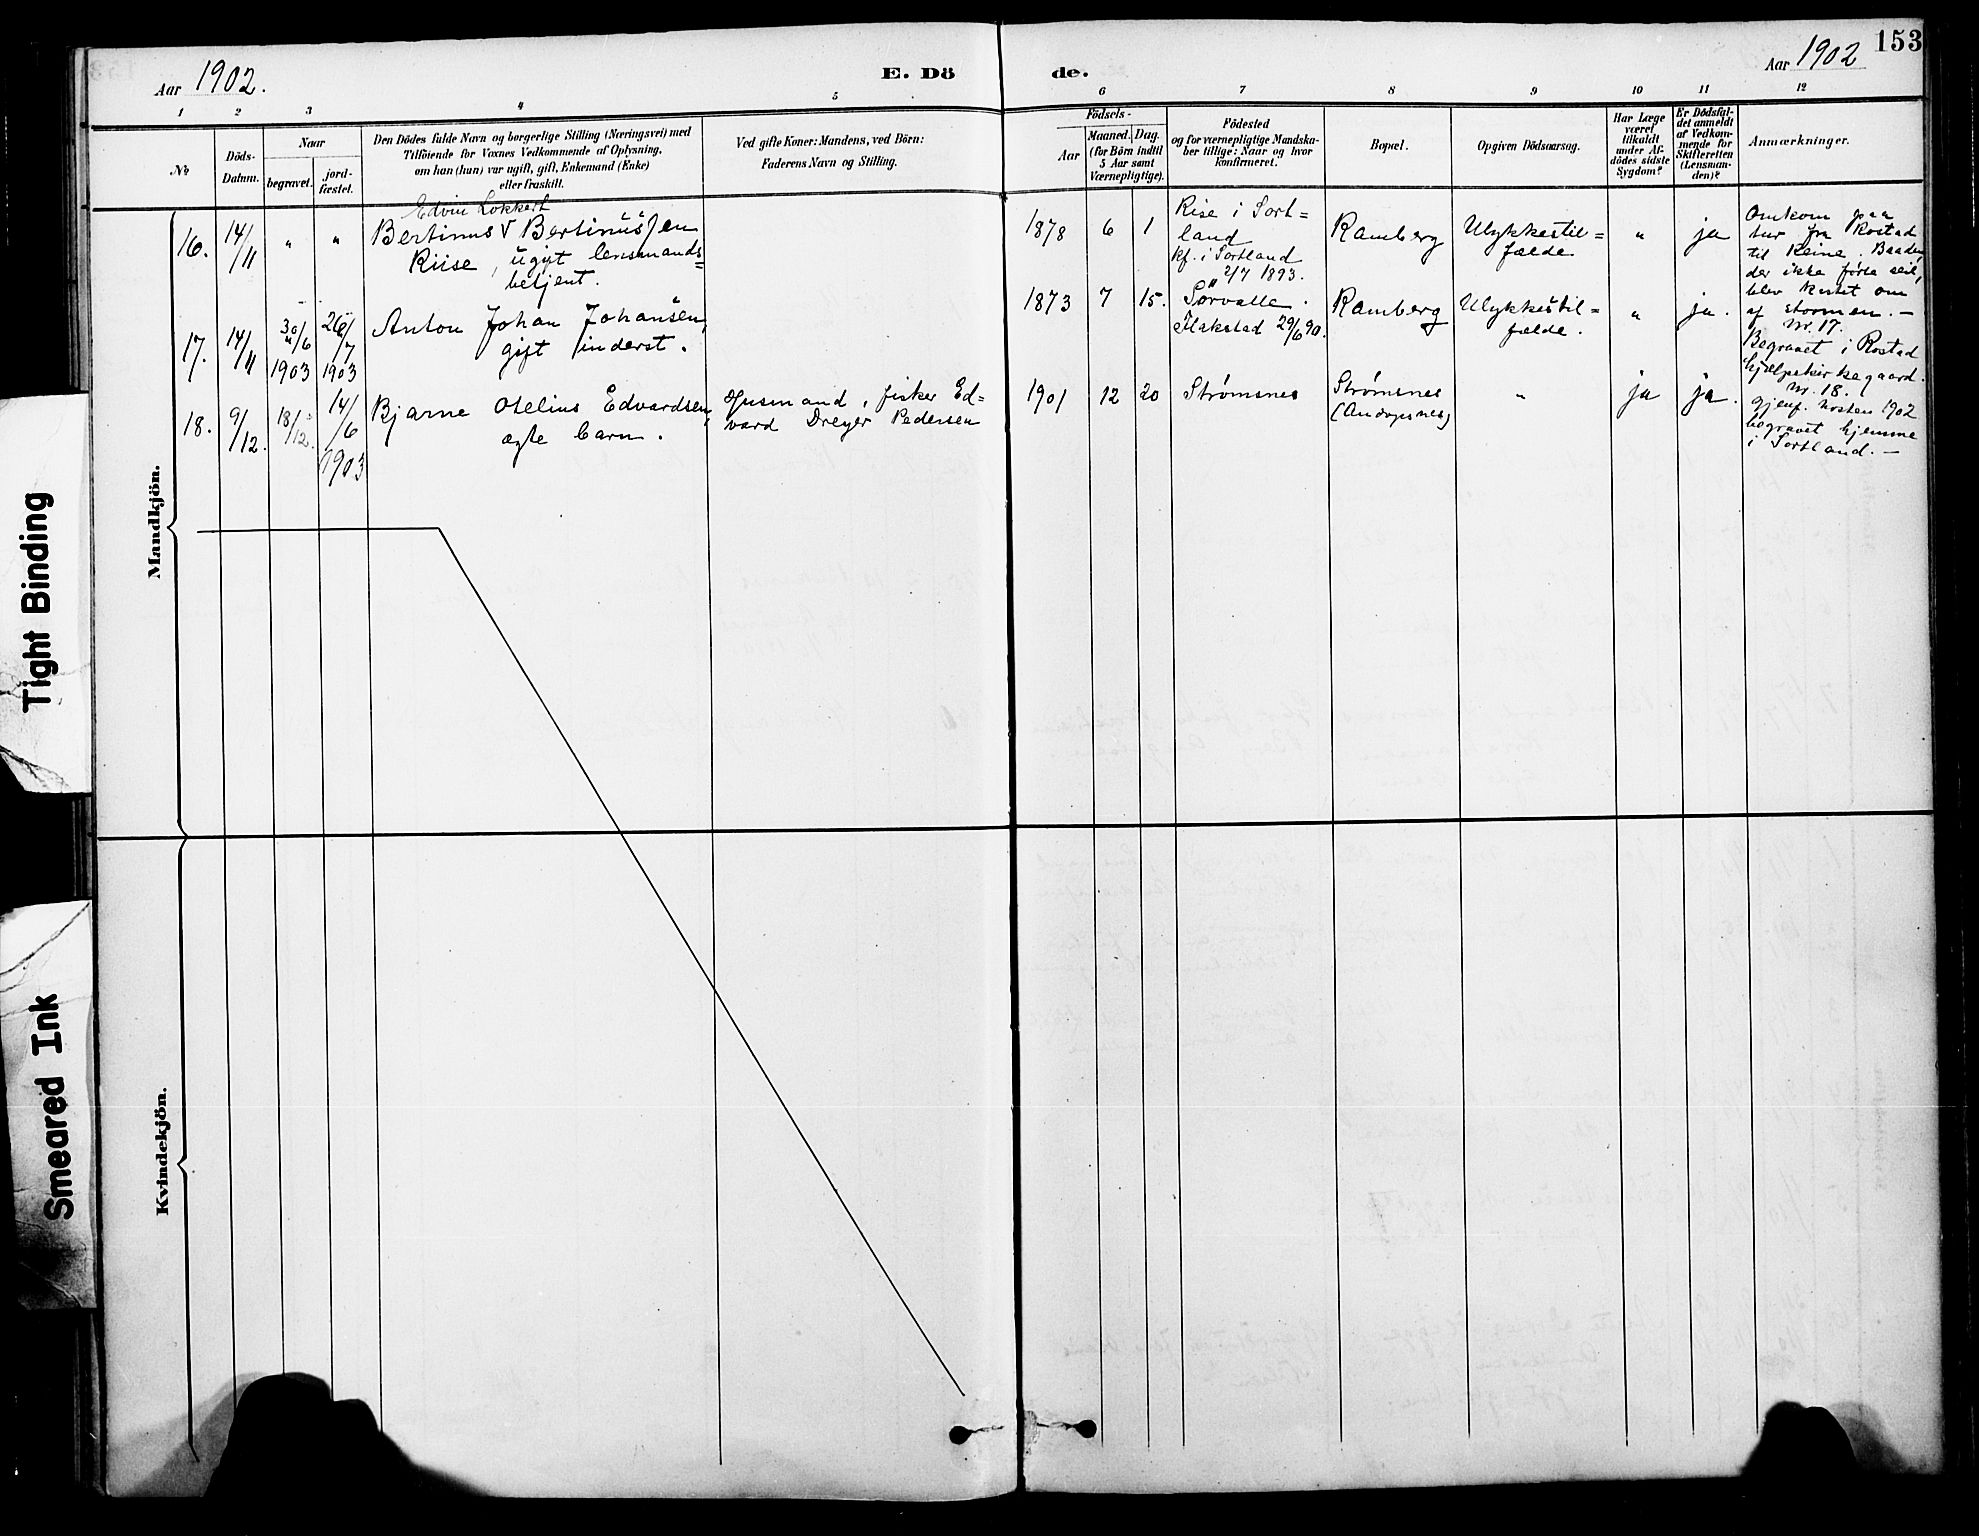 153
Aar 1902.
E. Dö
de.
Aar 1902
1 2 3 4 5 6 7 8 9 10 11 12
№
Döds-
Datum.
Naar
begravet.
jord-
fæstet.
Den Dödes fulde Navn og borgerlige Stilling (Næringsvei) med
Tilföiende for Voxnes Vedkommende af Oplysning,
om han (hun) var ugift, gift, Enkemand (Enke)
eller fraskilt.
Ved gifte Koner: Mandens, ved Börn:
Faderens Navn og Stilling.
Födsels-
Aar
Maaned. Dag.
(for Börn indtil
5 Aar samt
Værnepligtige).
Födested
og for værnepligtige Mandska-
ber tillige: Naar og hvor
konfirmeret.
Bopæl.
Opgiven Dödsaarsag.
Har Læge
været
tilkaldt
under Af-
dödes sidste
Sygdom?
Er Dödsfal-
det anmeldt
af Vedkom-
mende for
Skifteretten
(Lensman-
den)?
Anmærkninger.
Mandkjön.
16.
14/11
"
"
Edvin Lokkert
Bertinus V Bertinussen
Riise, ugift lensmands=
betjent.
1878
6
1
Rise i Sort=
land
kf. i Sortland
2/7 1893.
Ramberg
Ulykkestil=
fælde
"
ja
Omkom paa
tur fra Rostad
til Reine. Baaden,
der ikke førte seil,
blev kastet om
af stormen. —
17.
14/11
30/6
1903
26/7
1903
Anton Johan Johansen,
gift inderst.
1873
7
15.
Sørvalle.
Flakstad 29/6 90.
Ramberg
Ulykkestil=
fælde.
"
ja.
Nr. 17.
Begravet i Rostad
hjælpekirkegaard.
18.
9/12.
18/12.
14/6
1903
Bjarne Otelius Edvardsen,
ægte barn.
Husmand, fisker Ed=
vard Dreyer Pedersen
1901
12
20
Strømsnes
Strømsnes
(Andopsnes)
"
ja
ja.
Nr. 18.
gjenf. høsten 1902
begravet hjemme
i Sortland. —
Kvindekjön.
Tight Binding
Smeared Ink